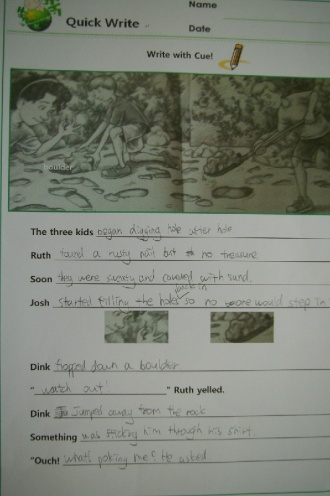 Quick Write
Name
Date
Write with Cue!
boulder
The three kids began digging hole after hole
Ruth found a rusty nail but no treasure
Soon they were sweaty and covered with sand.
back in
Josh started filling the holes so no one would step in
Dink flopped down a boulder
" watch out! " Ruth yelled.
Dink Jumped away from the rock
Something was him through his shirt.
"Ouch! what's poking me? He asked